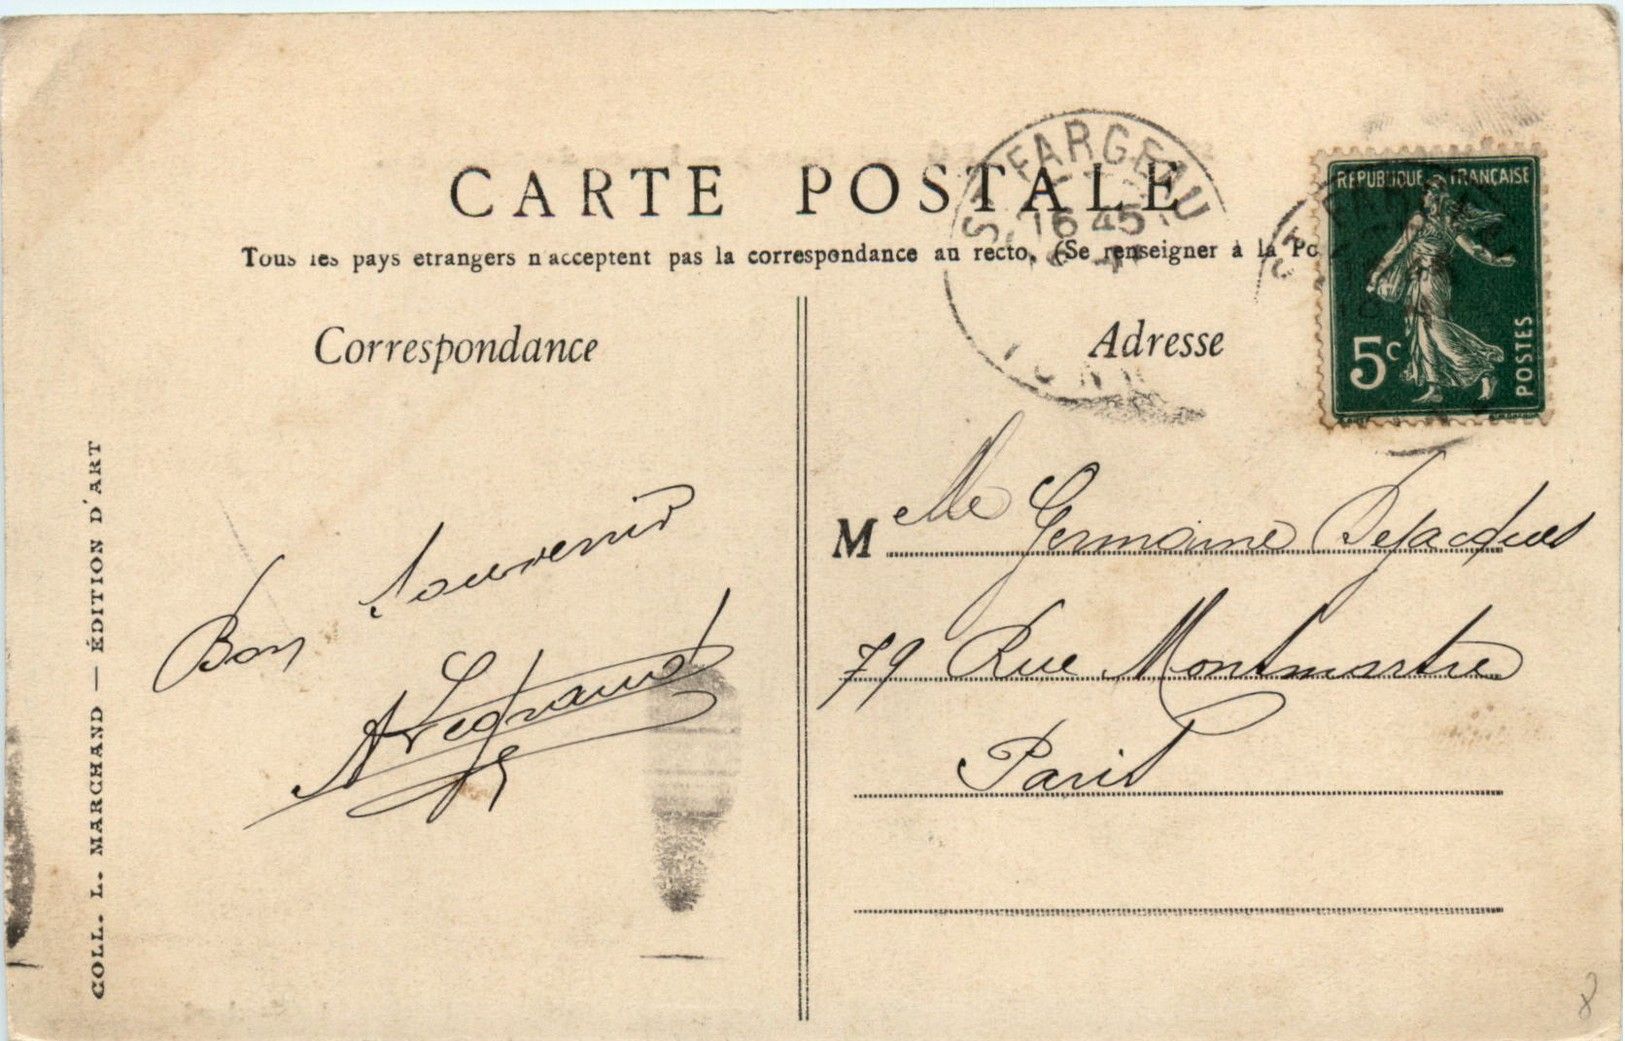 CARTE POSTALE
Tous les pays etrangers n'acceptent pas la correspondance au recto. (Se renseigner à la Po
Correspondance
Adresse
ST FARGEAU
16 45
YONNE
RÉPUBLIQUE FRANÇAISE
5c
POSTES
Bon souvenir
ALegrand
M elle Germaine Dejacques
79 Rue Montmartre
Paris
COLL. L. MARCHAND — ÉDITION D'ART
8